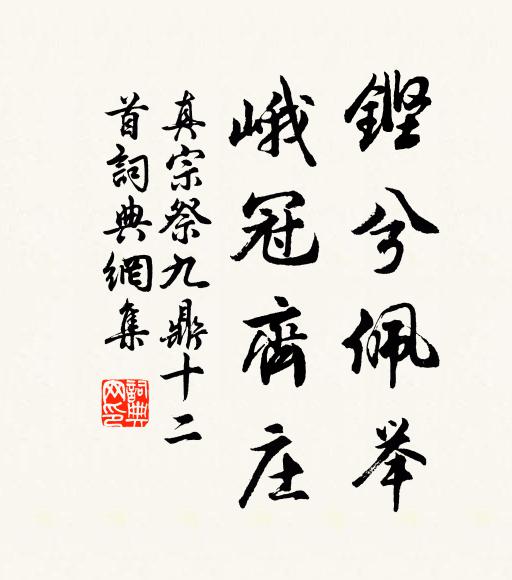 鏗兮佩举
峨冠齊庄
真宗祭九鼎十二
首詞典網集
詞典網印